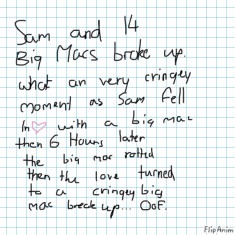 Sam and 14
Big Macs broke up.
what an very cringey
moment as Sam fell
In 🩷 with a big mac
then 6 Hours later
the big mac rotted
then the love turned
to a cringey big
mac break up... OOF.
FlipAnim